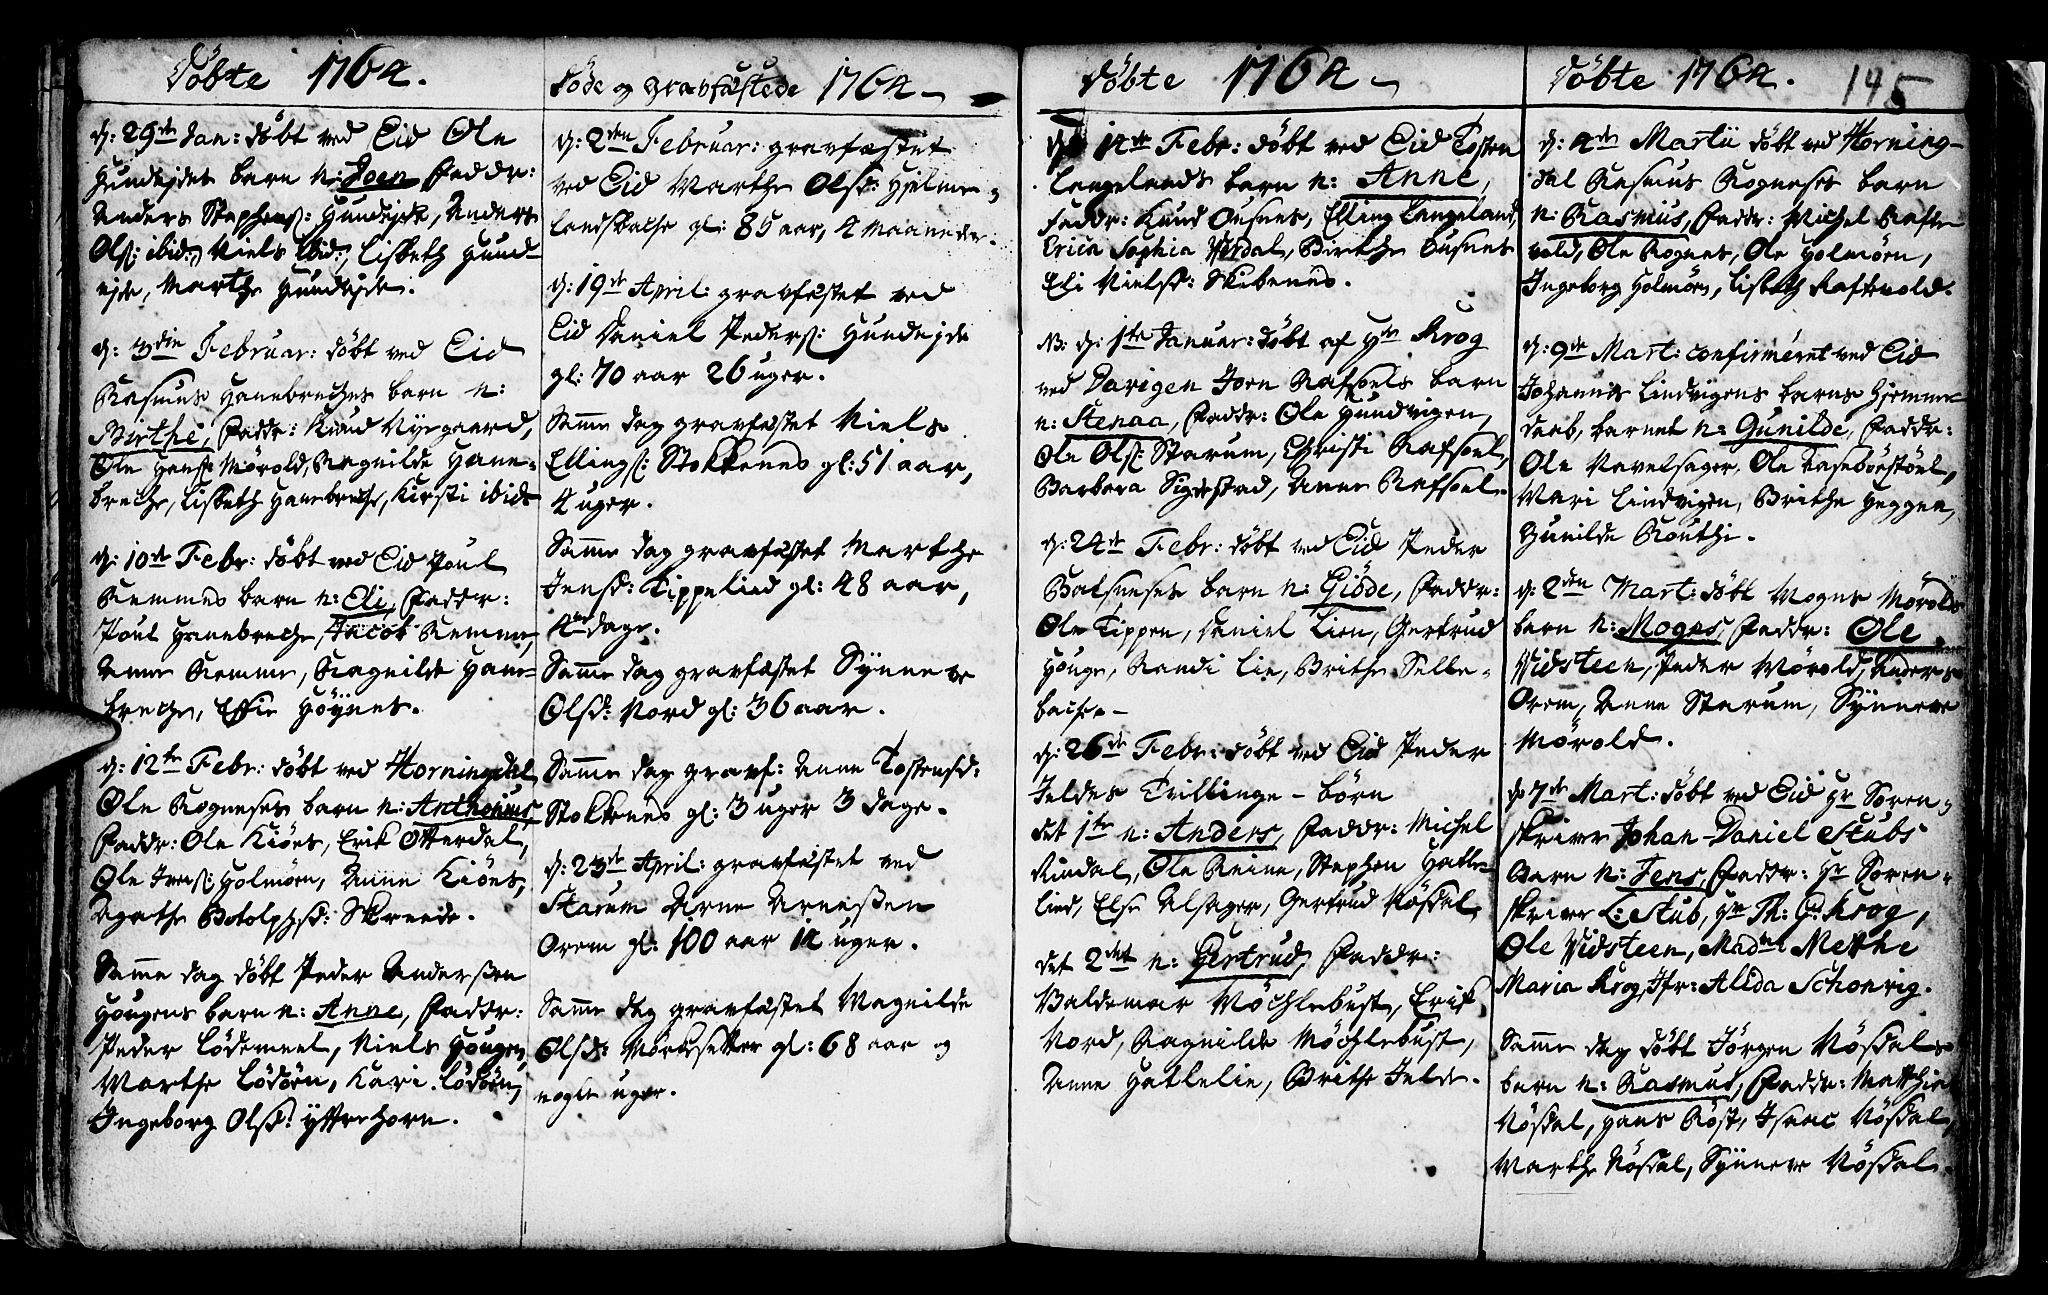 Døbte 1764.
d: 29de Jan: døbt ved Eid Ole
Hundejdes barn n: Joen, Faddr:
Anders Stephens: Hundejde, Anders
Ols: ibid:, Niels ibid:, Lisbeth Hund-
ejde, Marthe Hundejde.
d: 3die Februar: døbt ved Eid
Rasmus Hanebreches barn n:
Birthe, Faddr: Knud Nyegaard,
Ole Hens: Mørold, Ragnilde Hane-
breche, Lisbeth Hanebreche, Kirsti ibid:
d: 10de Febr: døbt ved Eid Poul
Remmes barn n: Eli, Faddr:
Poul Hanebreche, Jacob Remme,
Anne Remme, Ragnilde Hane-
breche, Effie Høynes.
d: 12te Febr: døbt ved Horningdal
Ole Rogneses barn n: Anthonius,
Faddr: Ole Kiøes, Erik Otterdal,
Ole Ivers: Holmøen, Anne Kiøes,
Agathe Botolphsd: Skreede.
Samme dag døbt Peder Anderssen
Hougens barn n: Anne, Faddr:
Peder Lødemeel, Niels Hougen,
Marthe Lødøen, Kari Lødøen,
Ingeborg Olsd: Yttrehorn.
Døde og gravfæstede 1764
d: 2den Februar: gravfæstet
ved Eid Marthe Olsd: Hjelme-
landsbakke gl: 85 aar, 4 Maaneder.
d: 19de April: gravfæstet ved
Eid Daniel Peders: Hundejde
gl: 70 aar 26 uger.
Samme dag gravfæstet Niels
Ellings: Stokkenes gl: 51 aar,
4 uger.
Samme dag gravfæstet Marthe
Jensd: Tippelied gl: 48 aar,
4re dage.
Samme dag gravfæstet Synneve
Olsd: Nord gl: 36 aar.
Samme dag gravf: Anne Tostensd:
Stokkenes gl: 3 uger 3 dage.
d: 23de April: gravfæstet ved
Starum Arne Arnessen
Orem gl: 100 aar 14 uger.
Samme dag gravfæstet Magnilde
Olsd: Morkesetter gl: 68 aar og
nogle uger.
Døbte 1764
d: 14de Febr: døbt ved Eid Tosten
Langelands barn n: Anne,
Faddr: Knud Ousnes, Elling Langeland,
Erica Sophia Nordal, Birthe Ousnes
Eli Nielsd: Skibenes.
NB: d: 1ste Januar: døbt af Hr Krog
ved Davigen Joen Rafsoels barn
n: Stenaa, Faddr: Ole Hundvigen,
Ole Ols: Starum, Christi Rafsoel,
Barbara Sigdestad, Anne Rafsoel.
d: 24de Febr: døbt ved Eid Peder
Balsneses barn n: Giøde, Faddr:
Ole Tippen, Daniel Lien, Gertrud
Houge, Randi Lie, Brithe Selle-
d: 26de Febr: døbt ved Eid Peder
Jeldes Trillinge-børn
det 1ste n: Anders, Faddr: Michel
Rindal, Ole Reine, Stephen Hatle-
lied, Else Alsager, Gertrud Nøsdal,
det 2det n: Gertrud, Faddr:
Valdemar Møchlebust, Erik
Nord, Ragnilde Møchlebust,
Anne Hatlelie, Brithe Jelde.
Døbte 1764. 145
d: 4de Martii døbt ved Horning-
dal Rasmus Rogneses barn
n: Rasmus, Faddr: Michel Rafte-
vold, Ole Rognes, Ole Holmøen,
Ingeborg Holmøen, Lisbeth Raftevold.
d: 9de Mart: confirmeret ved Eid
Johannes Lindvigens barns hjemme-
daab, barnet n: Gunilde, Faddr:
Ole Navelsager, Ole Tasebøestøel,
Mari Lindvigen, Brithe Heggen,
Gunilde Routhi.
d: 2den Mart: døbt Mogns Mørolds
barn n: Mogns, Faddr: Ole
Vidsteen, Peder Mørold, Anders
Orem, Anne Starum, Synneve
Mørold.
d: 7de Mart: døbt ved Eid Hr Soren-
skriver Johan Daniel Stubs
Barn n: Jens, Faddr: Hr Soren-
skriver L: Stub, Hr Th: G: Krog,
Ole Vidsteen, Madme Mette
Maria Krog, Jfr: Alida Schonrig.
Samme dag døbt Jørgen Nøsdals
barn n: Rasmus, Faddr: Matthis
Nøsdal, Hans Røst, Isaac Nøsdal,
Marthe Nøsdal, Synneve Nøsdal.